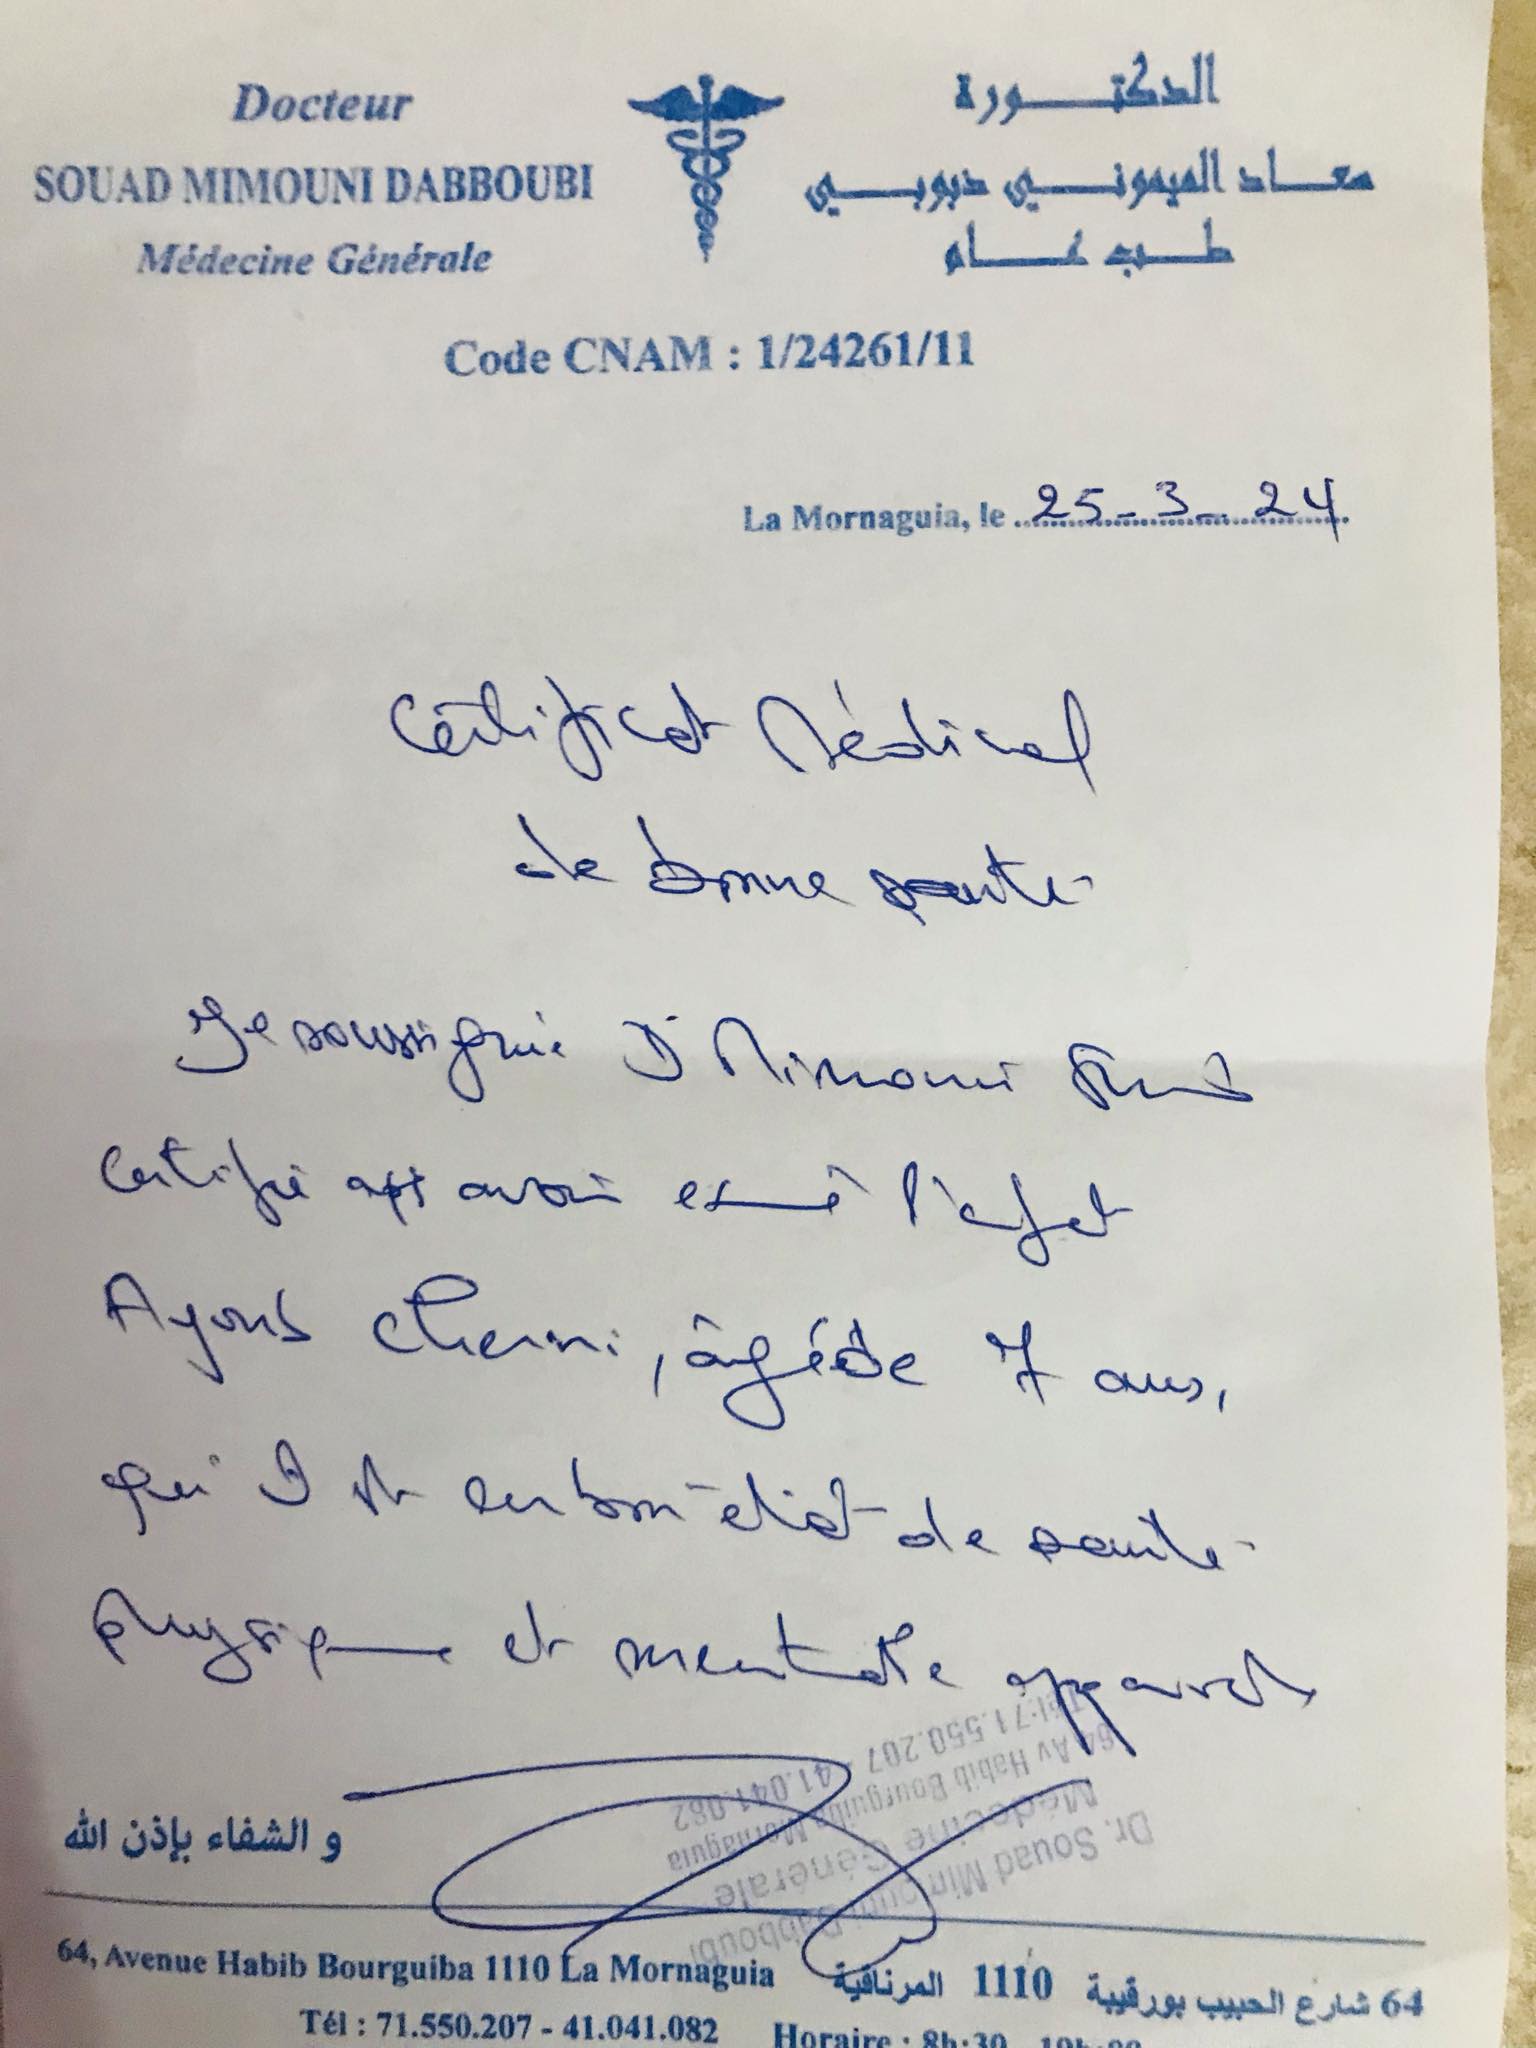 Docteur
SOUAD MIMOUNI DABBOUBI
Médecine Générale
الدكتورة
سعاد الميموني دبوبي
طب عام
Code CNAM : 1/24261/11
La Mornaguia, le 25-3-24
Certificat Médical
de bonne santé
Je soussignée Dr Mimouni Souad
certifie avoir l'enfant
Ayoub Cherni, âgé de 7 ans,
qui est en bon état de santé
physique et mentale
و الشفاء بإذن الله
Dr. Souad Mimouni Dabboubi
Médecine Générale
64 Av Habib Bourguiba Mornaguia
Tél:71.550.207 - 41.041.082
64, Avenue Habib Bourguiba 1110 La Mornaguia
64 شارع الحبيب بورقيبة 1110 المرناقية
Tél : 71.550.207 - 41.041.082
Horaire : 8h:30